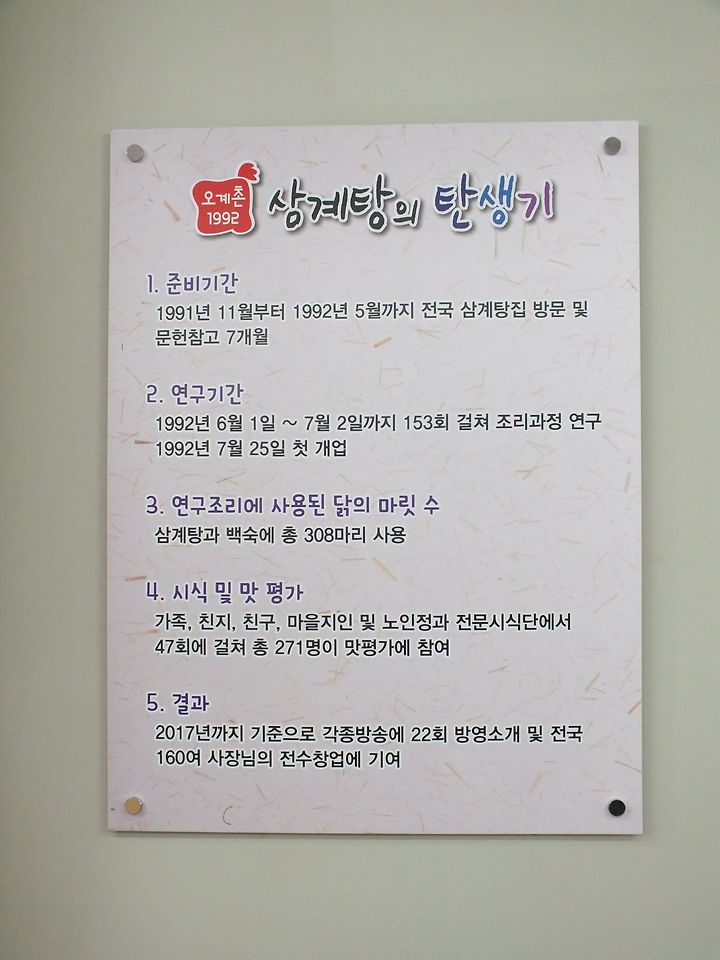 오계촌
1992
삼계탕의 탄생기
1. 준비기간
1991년 11월부터 1992년 5월까지 전국 삼계탕집 방문 및
문헌참고 7개월
2. 연구기간
1992년 6월 1일 ~ 7월 2일까지 153회 걸쳐 조리과정 연구
1992년 7월 25일 첫 개업
3. 연구조리에 사용된 닭의 마릿 수
삼계탕과 백숙에 총 308마리 사용
4. 시식 및 맛 평가
가족, 친지, 친구, 마을지인 및 노인정과 전문시식단에서
47회에 걸쳐 총 271명이 맛평가에 참여
5. 결과
2017년까지 기준으로 각종방송에 22회 방영소개 및 전국
160여 사장님의 전수창업에 기여